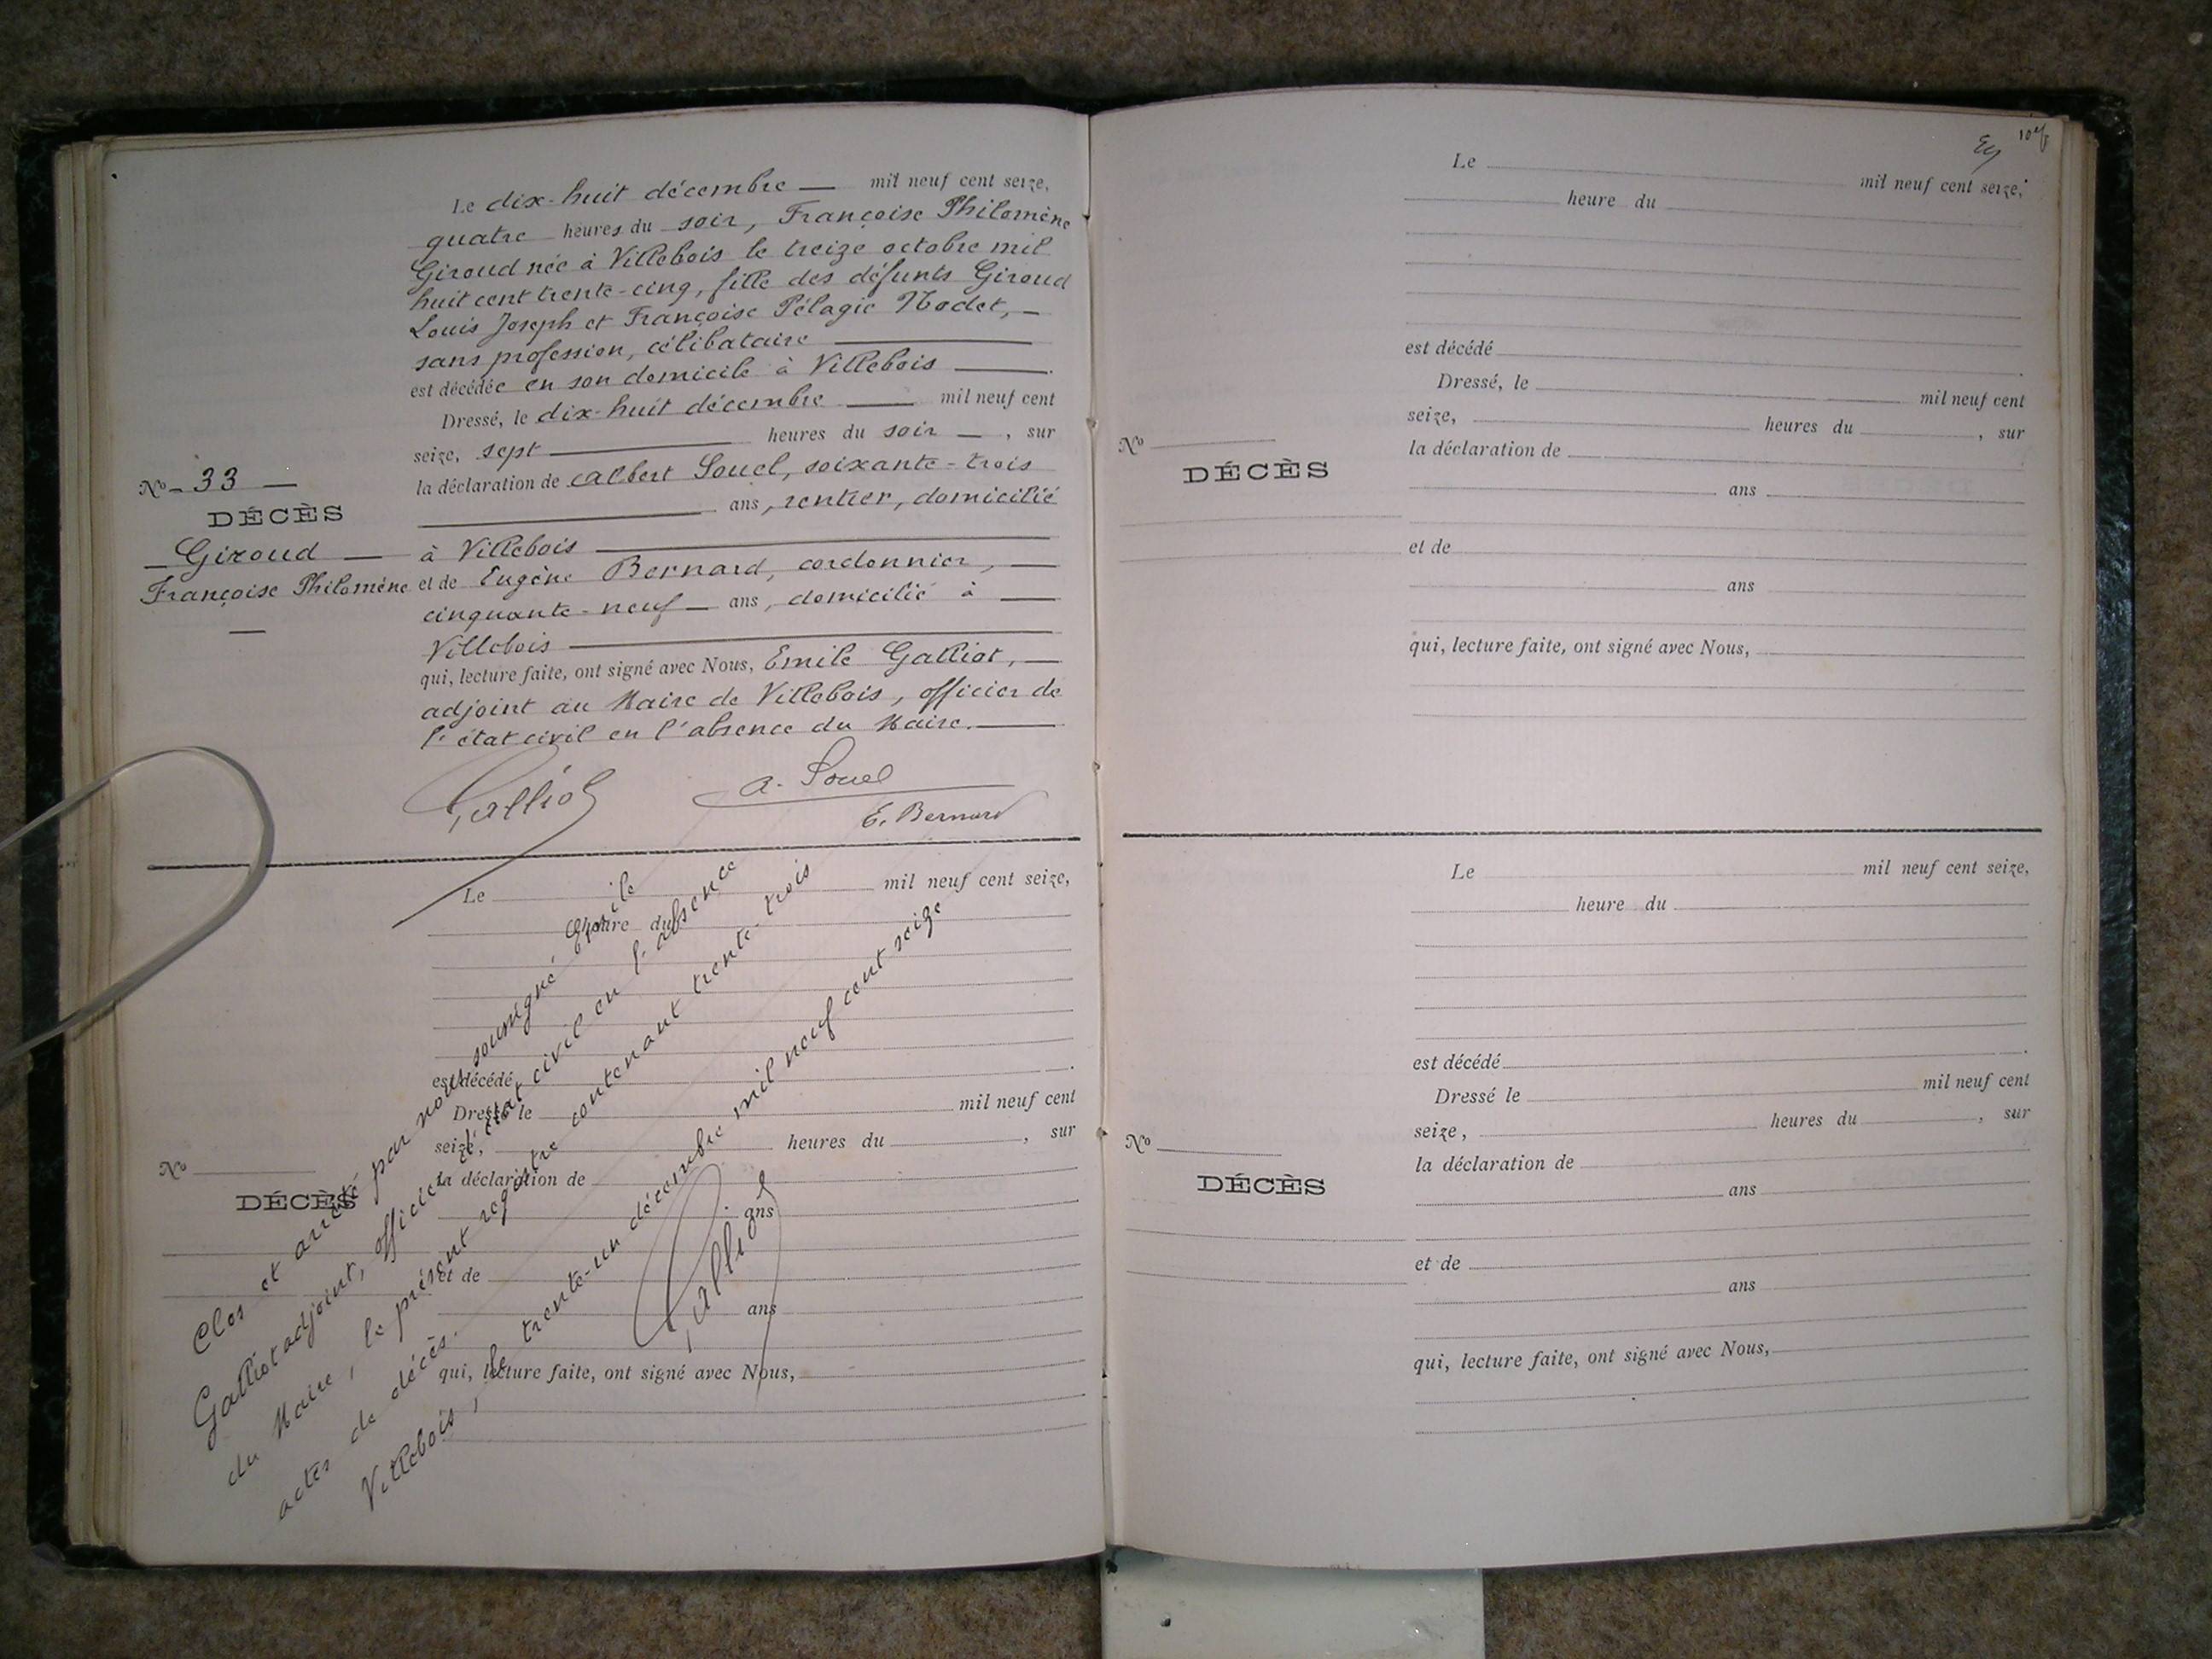 Le dix-huit décembre — mil neuf cent seize,
quatre heures du soir, Françoise Philomène
Giroud née à Villebois le treize octobre mil
huit cent trente-cinq, fille des défunts Giroud
Louis Joseph et Françoise Pélagie Nodet, —
sans profession, célibataire —
est décédée en son domicile à Villebois —.
Dressé, le dix-huit décembre — mil neuf cent
seize, sept — heures du soir —, sur
la déclaration de Albert Souel, soixante-trois
— ans, rentier, domicilié
à Villebois —
et de Eugène Bernard, cordonnier, —
cinquante-neuf — ans, domicilié à —
Villebois —
qui, lecture faite, ont signé avec Nous, Emile Galliot, —
adjoint au Maire de Villebois, officier de
l'état civil en l'absence du Maire. —
Nº - 33 —
DÉCÈS
— Giroud —
Françoise Philomène
—
Galliot
A. Souel
E. Bernard
Le mil neuf cent seize,
heure du
est décédé .
Dressé le mil neuf cent
seize, heures du , sur
la déclaration de
ans
et de
ans
qui, lecture faite, ont signé avec Nous,
Nº
DÉCÈS
Clos et arrêté par nous soussigné Emile
Galliot adjoint, officier de l'état civil en l'absence
du Maire, le présent registre contenant trente-trois
actes de décès.
Villebois, le trente-un décembre mil neuf cent seize
Galliot
Le mil neuf cent seize,
heure du
est décédé .
Dressé, le mil neuf cent
seize, heures du , sur
la déclaration de
ans
et de
ans
qui, lecture faite, ont signé avec Nous,
Nº
DÉCÈS
Le mil neuf cent seize,
heure du
est décédé .
Dressé le mil neuf cent
seize, heures du , sur
la déclaration de
ans
et de
ans
qui, lecture faite, ont signé avec Nous,
Nº
DÉCÈS